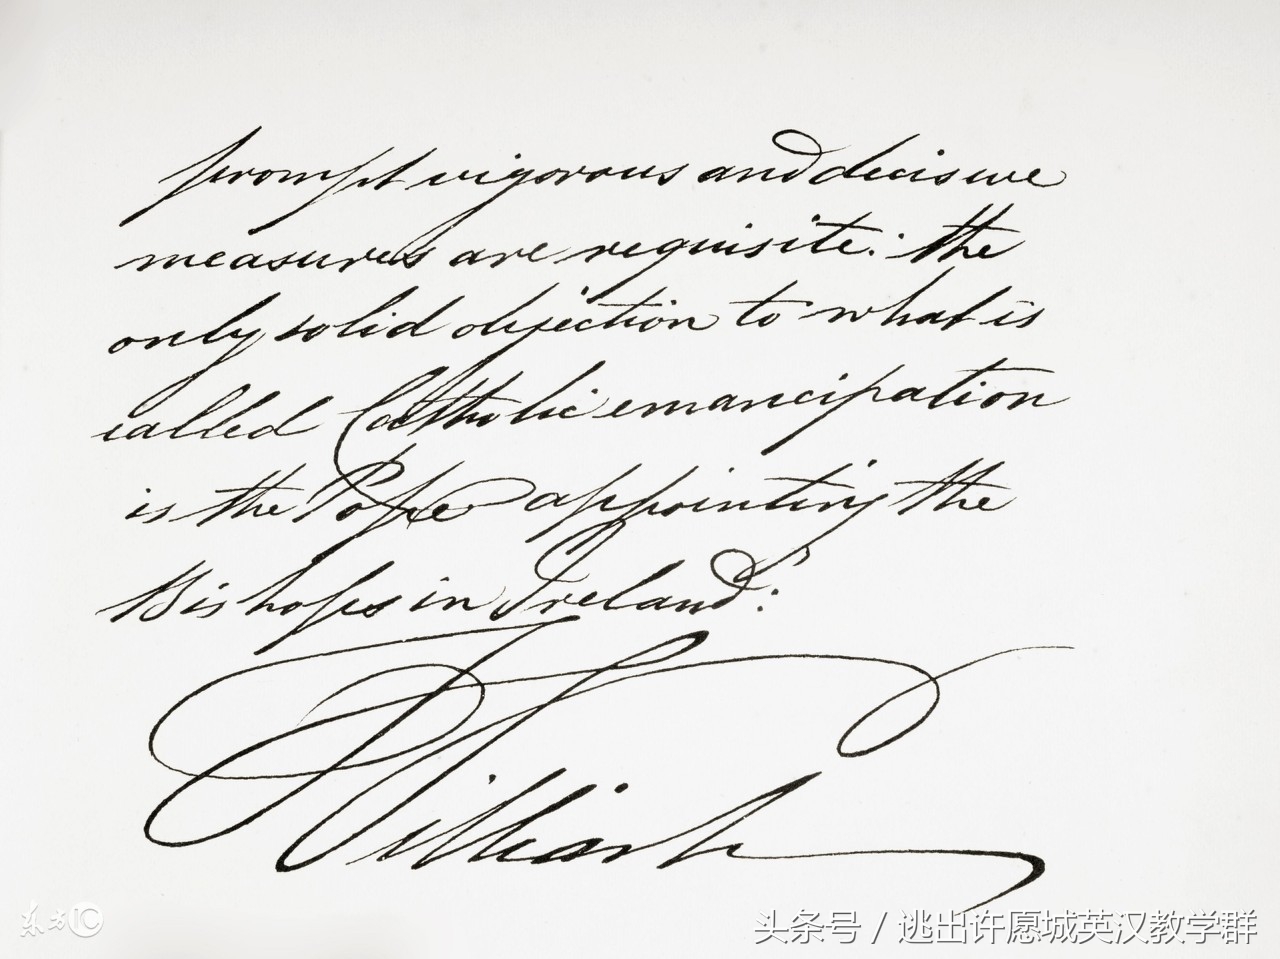 prompt vigorous and decisive
measures are requisite: the
only solid objection to what is
called Catholic emancipation
is the Pope appointing the
Bishops in Ireland:
William
东方IC
头条号 / 逃出许愿城英汉教学群